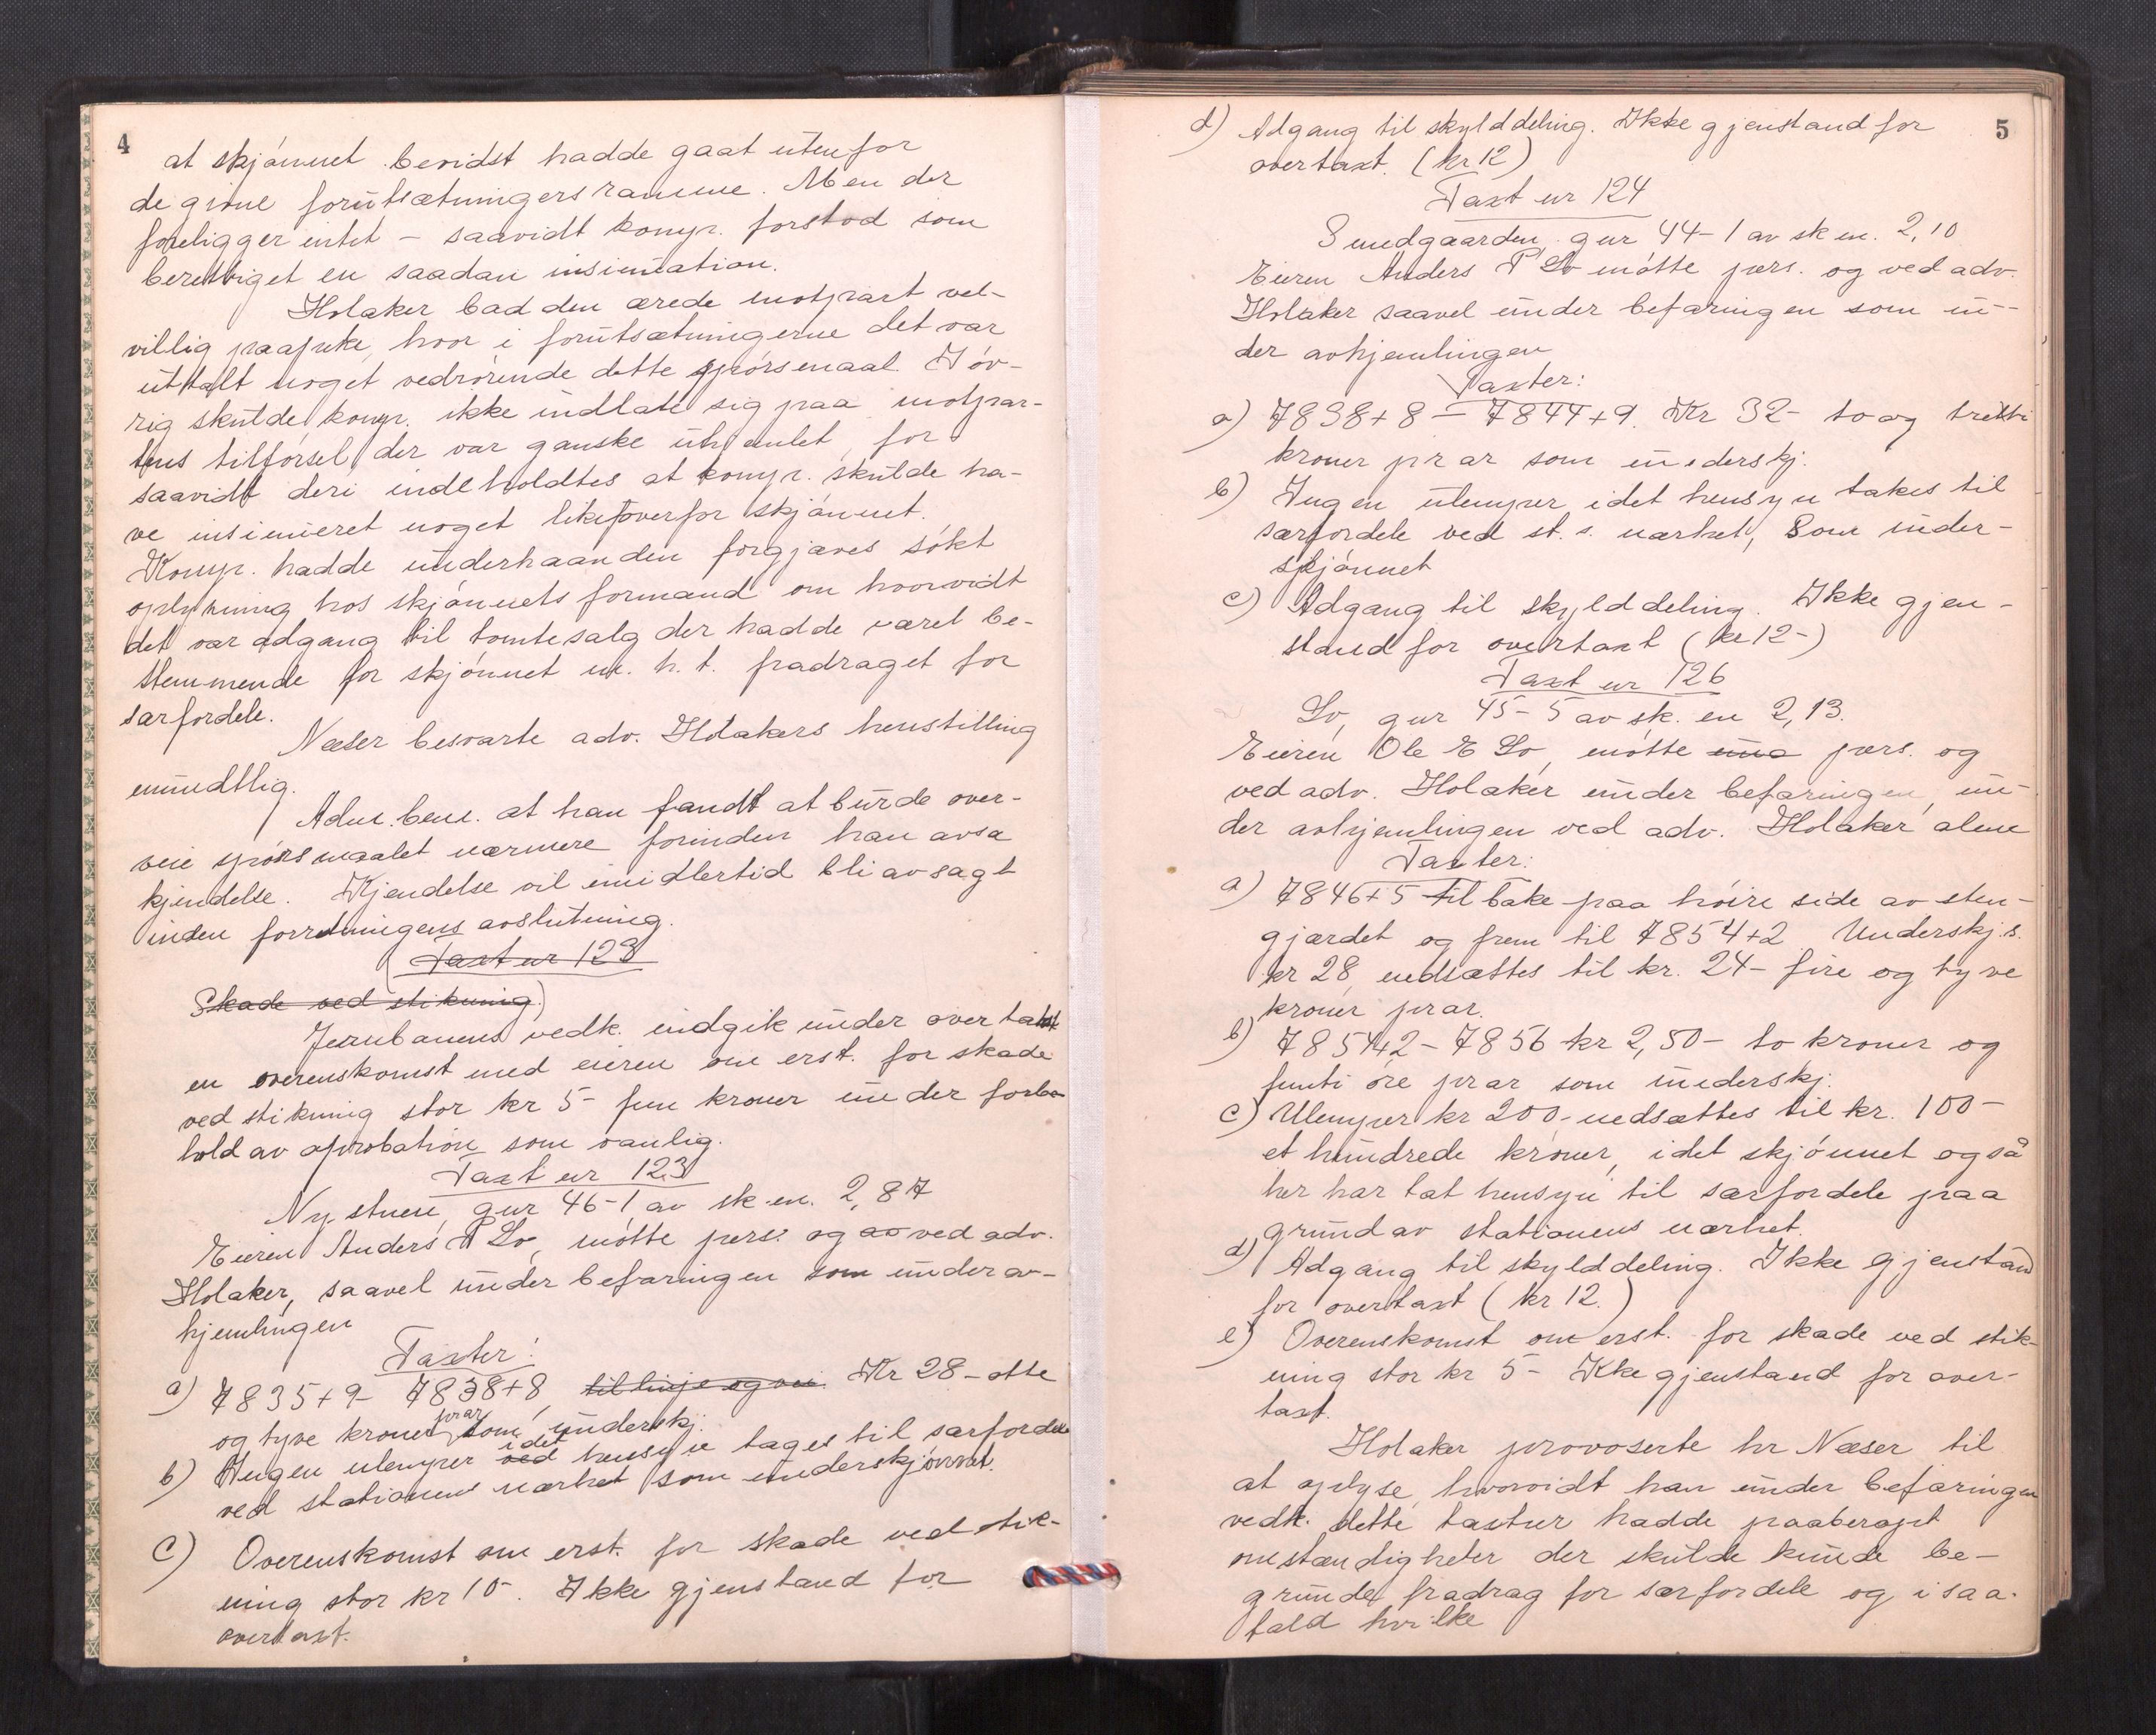 4
at skjønnet bevidst hadde gaat utenfor
de givne forutsætningers ramme. Men der
foreligger intet – saavidt komp. forstod som
berettiget en saadan insinuation.
Holaker bad den ærede motpart vel-
villig paapeke, hvor i forutsætningerne det var
uttalt noget vedrørende dette spørsmaal. I øv-
rig skulde komp. ikke indlate sig paa motpar-
tens tilførsel, der var ganske uhjemlet, for
saavidt deri indeholdtes at komp. skulde ha-
ve insinueret noget likeoverfor skjønnet.
Komp. hadde underhaanden forgjæves søkt
oplysning hos skjønnets formand om hvorvidt
det var adgang til tomtesalg der hadde været be-
stemmende for skjønnet m. h. t. fradraget for
særfordele.
Næser besvarte adv. Holakers henstilling
mundtlig.
Adm. bem. at han fandt at burde over-
veie spørsmaalet nærmere forinden han avsa
kjendelse. Kjendelse vil imidlertid bli avsagt
inden forretningens avslutning.
Taxt nr 123
Skade ved stikning.
Jernbanens vedk. indgik under overtaxt
en overenskomst med eieren om erst. for skade
ved stikning stor kr 5- fem kroner under forbe-
hold av aprobation som vanlig.
Taxt nr 123
Nystuen, gnr 46-1 av sk. m. 2,87
Eieren Anders P Lø, møtte pers. og av ved adv.
Holaker, saavel under befaringen som under av-
hjemlingen
Taxter:
a) 7835+9- 7838+8, til linje og vei Kr 28- otte
og tyve kroner pr ar som underskj.
b) Ingen ulemper ved idet hensyn tages til særfordele
ved stationens nærhet som underskjønnet.
c) Overenskomst om erst. for skade ved stik-
ning stor kr 10-. Ikke gjenstand for
overtaxt.
5
d) Adgang til skylddeling. Ikke gjenstand for
overtaxt. (kr 12)
Taxt nr 124
Smedgaarden, gnr 44-1 av sk m. 2,10
Eieren Anders P Lø møtte pers. og ved adv.
Holaker saavel under befaringen som un-
der avhjemlingen
Taxter:
a) 7838+8 – 7844+9. Kr 32- to og tretti
kroner pr ar som underskj.
b) Ingen ulemper idet hensyn takes til
særfordele ved st. s. nærhet, som under-
skjønnet
c) Adgang til skylddeling. Ikke gjen-
stand for overtaxt (kr 12-)
Taxt nr 126
Lø, gnr 45-5 av sk. m 2,13.
Eieren Ole E Lø, møtte pers. og
ved adv. Holaker under befaringen, un-
der avhjemlingen ved adv. Holaker alene
Taxter:
a) 7846+5 tilbake paa høire side av sten-
gjærdet og frem til 7854+2. Underskj.s.
kr 28, nedsættes til kr. 24- fire og tyve
kroner pr ar.
b) 7854+2 – 7856 kr 2,50- to kroner og
femti øre pr ar som underskj.
c) Ulemper kr 200,- nedsættes til kr. 100-
et hundrede kroner, idet skjønnet også
her har tat hensyn til særfordele paa
grund av stationens nærhet.
d) Adgang til skylddeling. Ikke gjenstand
for overtaxt (kr 12.)
e) Overenskomst om erst. for skade ved stik-
ning stor kr 5- Ikke gjenstand for over-
taxt.
Holaker provoserte hr Næser til
at oplyse, hvorvidt han under befaringen
vedk. dette taxtnr hadde paaberopt
omstændigheter der skulde kunde be-
grunde fradrag for særfordele og i saa-
fald hvilke